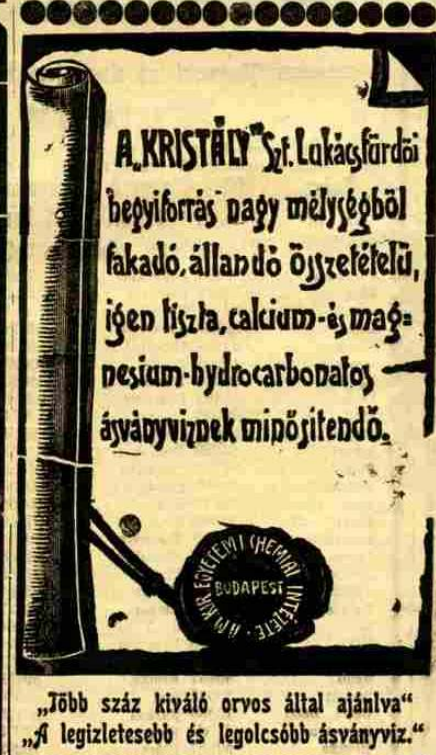 A „KRISTÁLY” Szt. Lukácsfürdői
hegyiforrás nagy mélységből
fakadó, állandó összetételű,
igen tiszta, calcium- és mag=
nesium-hydrocarbonatos
ásványviznek minősítendő.
A M. KIR. EGYETEMI CHEMIAI INTÉZETE
BUDAPEST
„Több száz kiváló orvos által ajánlva“
„A legizletesebb és legolcsóbb ásványviz.“